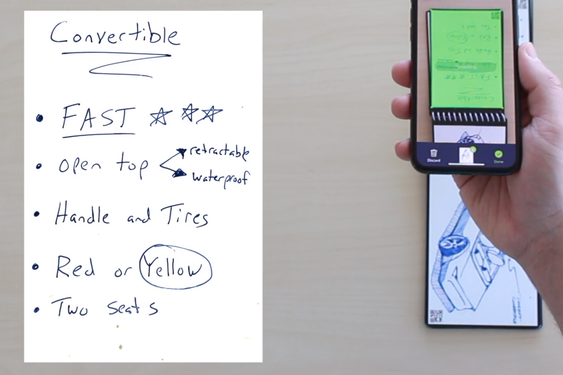 Convertible
• FAST
• open top
retractable
waterproof
• Handle and Tires
• Red or Yellow
• Two Seats
Discard
Done